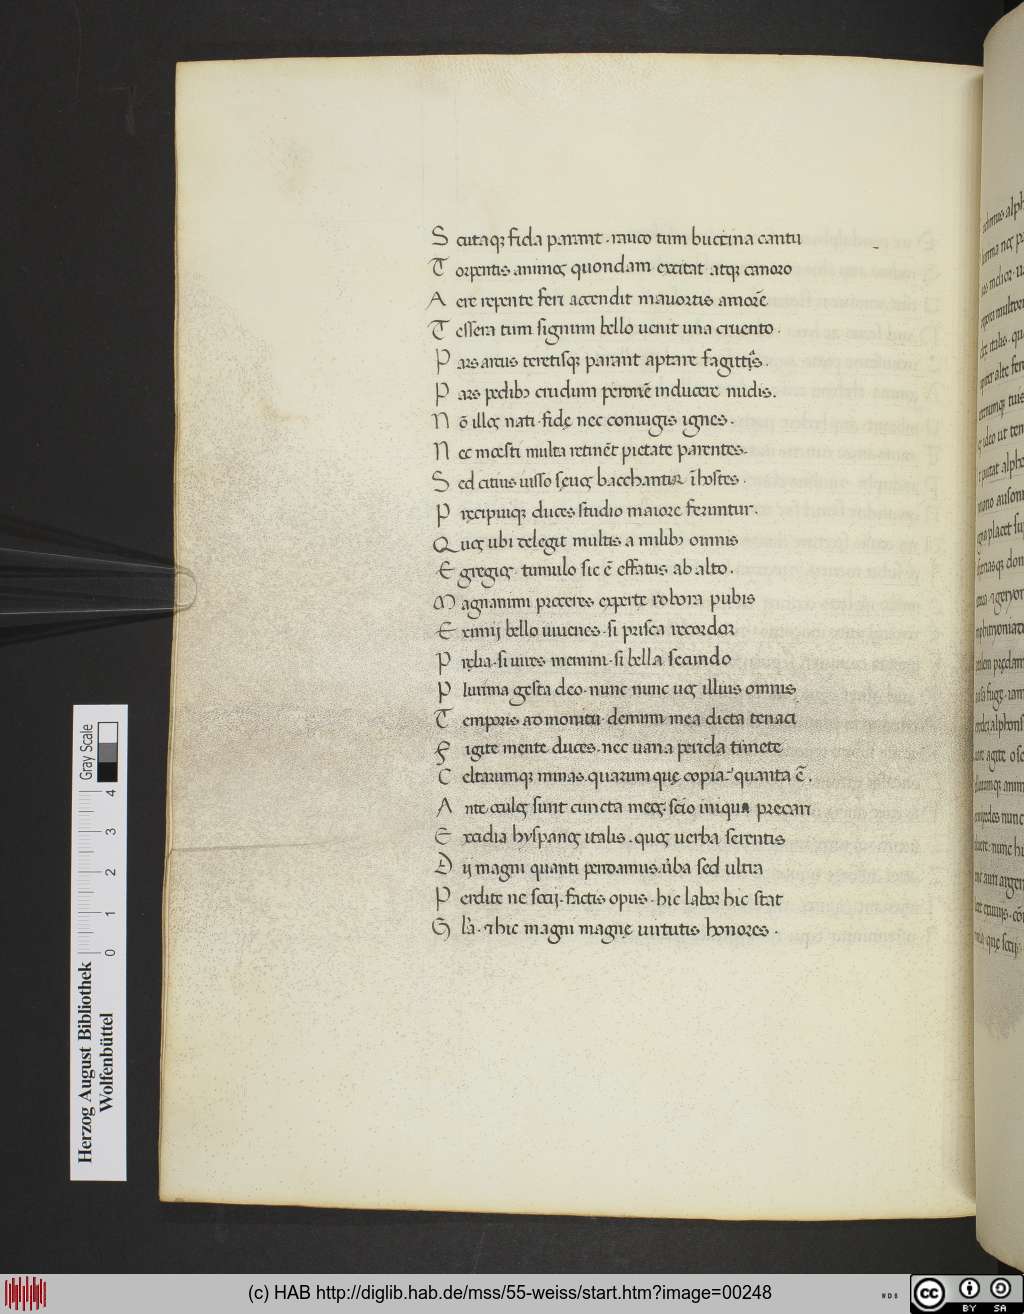 Scutaqꝫ fida parant · rauco tum buccina cantu
Torpentis animos quondam excitat atqꝫ canoro
Aere repente feri accendit mauortis amorē
Tessera tum signum bello uenit una cruento ·
Pars arcus teretisqꝫ parant aptare sagittis ·
Pars pedibꝫ crudum peronē inducere nudis ·
Nō illos nati · fidę nec coniugis ignes ·
Nec mœsti multa retinēt pietate parentes ·
Sed citius uisso sęuos bacchantur ī hostes ·
Precipuiqꝫ duces studio maiore feruntur ·
Quos ubi delegit multis a milibꝫ omnis
Egregios · tumulo sic ē effatus ab alto ·
Magnanimi proceres experte robora pubis
Eximij bello iuuenes · si prisca recordor
Pręlia · si uires memini · si bella secundo
Plurima gesta deo · nunc nunc uos illius omnis
Temporis admonitu · demum mea dicta tenaci
Figite mente duces · nec uana pericla timete
Celtarumqꝫ minas · quarum quę copia · quanta ē ·
Ante oculos sunt cuncta meos · scio iniqua precari
Excidia hyspanos italis · quos uerba serentis
Dij magni quanti perdamus · ūba sed ultra
Perdite ne socij · factis opus · hic labor hic stat
Glā · ⁊ hic magni magnę uirtutis honores ·
Herzog August Bibliothek
Wolfenbüttel
Gray Scale
0 1 2 3 4
(c) HAB http://diglib.hab.de/mss/55-weiss/start.htm?image=00248
cc BY SA